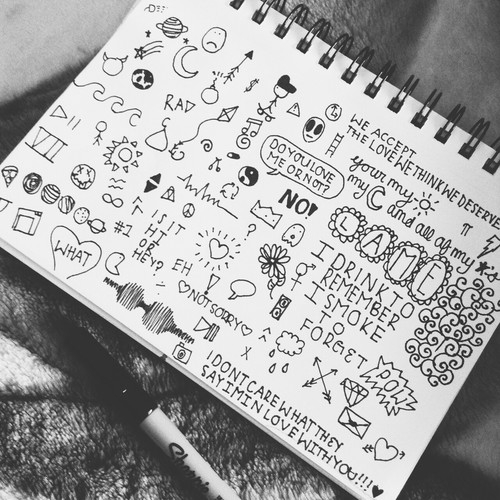 WE ACCEPT
THE LOVE WE THINK WE DESERVE
your my
my and all of my
RAD
$
DO YOU LOVE
ME OR NOT?
NO!
π
VII
LAME
#1
IS IT
HI
OR
HEY?
?
WHAT
EH
!
NOT SORRY
I DRINK TO
REMEMBER
I SMOKE
TO
FORGET
X
POW
I DONT CARE WHAT THEY
SAY IM IN LOVE WITH YOU!!!
Sharpie